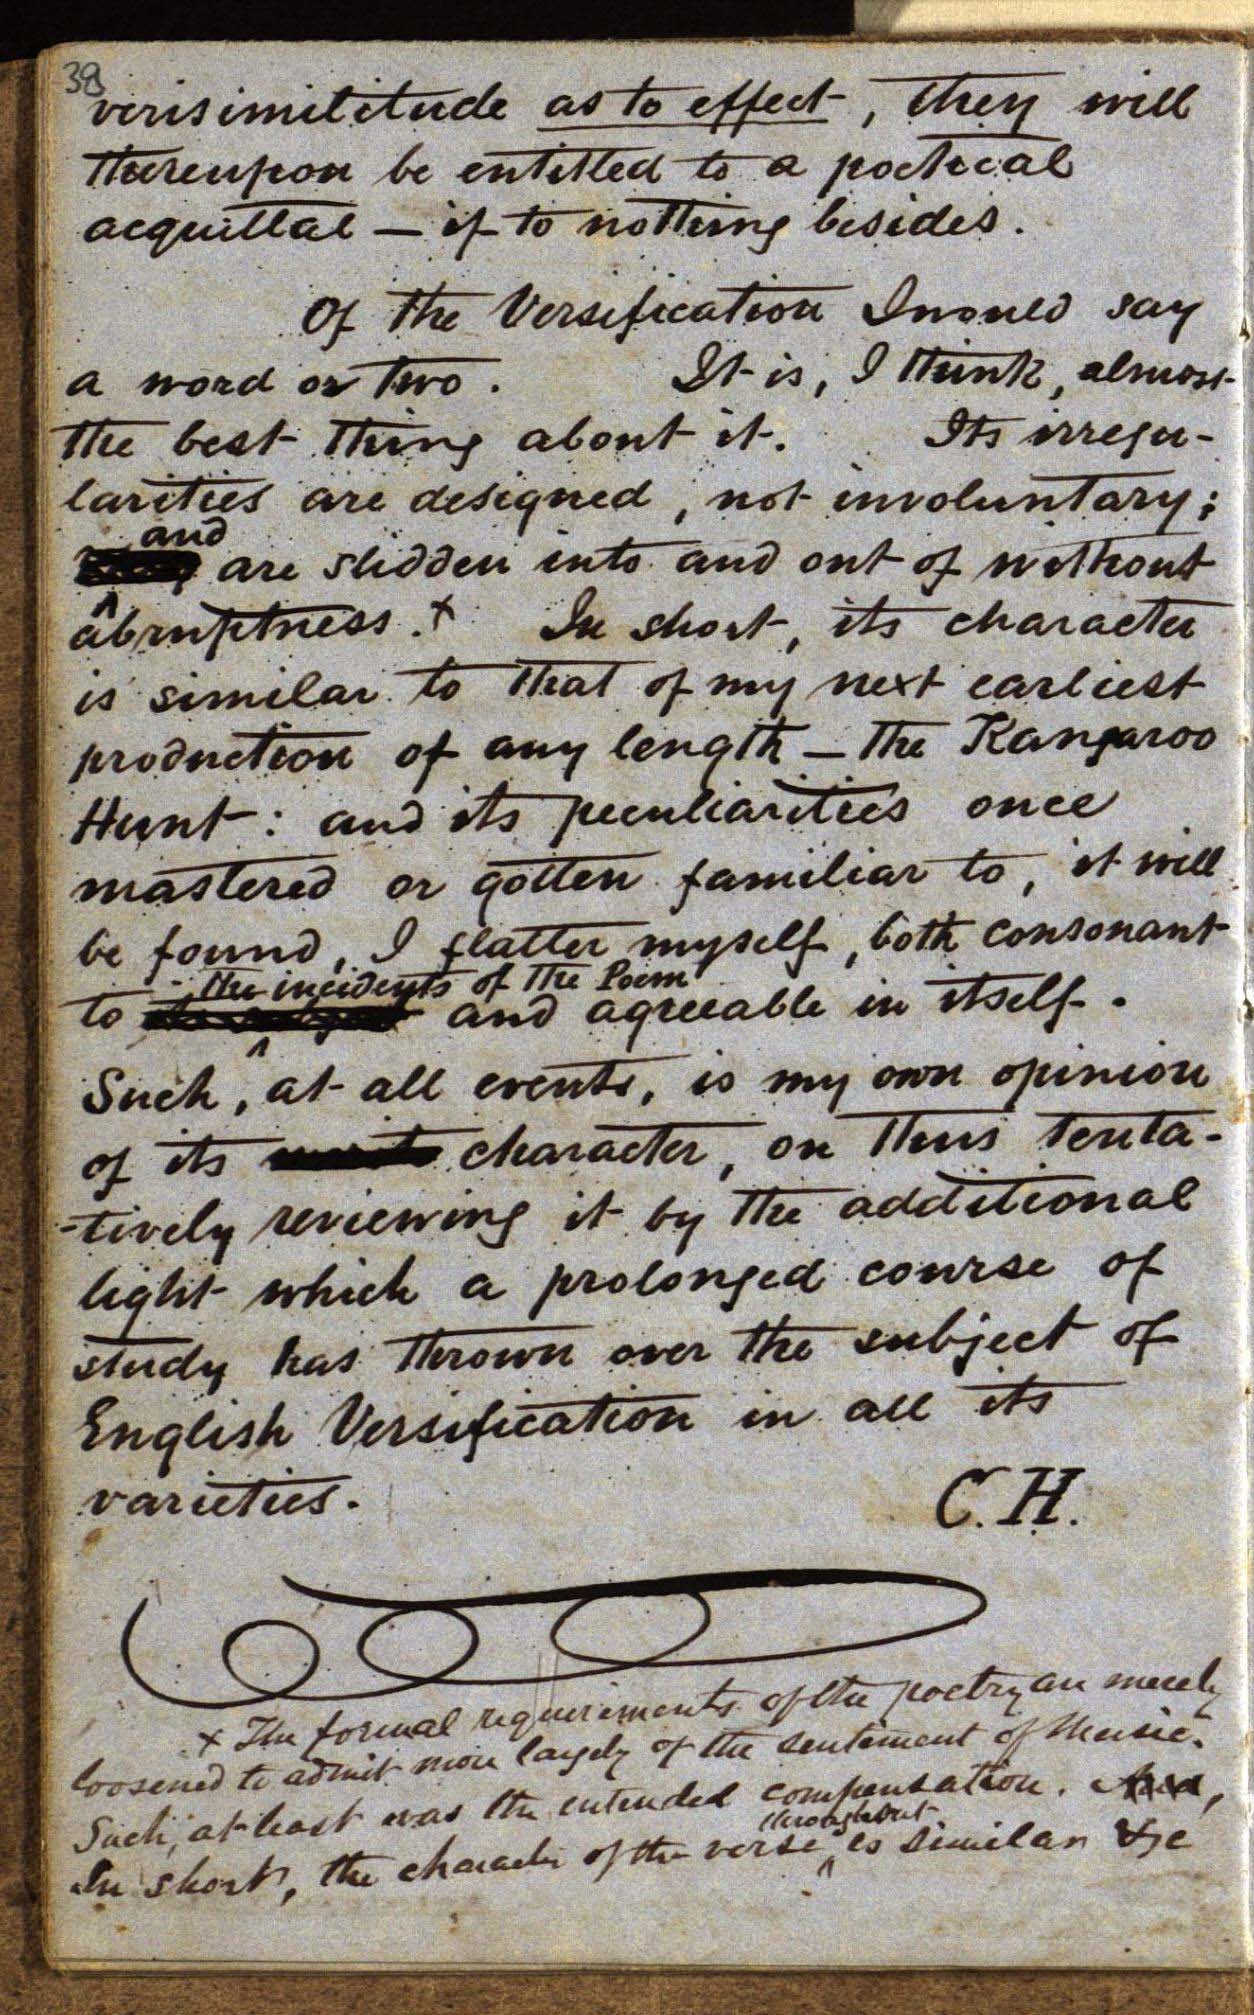 38
verisimilitude as to effect, they will
thereupon be entitled to a poetical
acquittal — if to nothing besides.
Of the Versification I would say
a word or two. It is, I think, almost
the best thing about it. Its irregu-
larities are designed, not involuntary;
and
are slidden into and out of without
abruptness.x In short, its character
is similar to that of my next earliest
production of any length — the Kangaroo
Hunt: and its peculiarities once
mastered or gotten familiar to, it will
be found, I flatter myself, both consonant
the incidents of the Poem
to and agreeable in itself.
Such, at all events, is my own opinion
of its character, on thus tenta-
-tively reviewing it by the additional
light which a prolonged course of
study has thrown over the subject of
English Versification in all its
varieties.
C. H.
x The formal requirements of the poetry are merely
loosened to admit more largely of the sentiment of Music.
Such, at least was the intended compensation.
throughout
In short, the character of the verse is similar &c